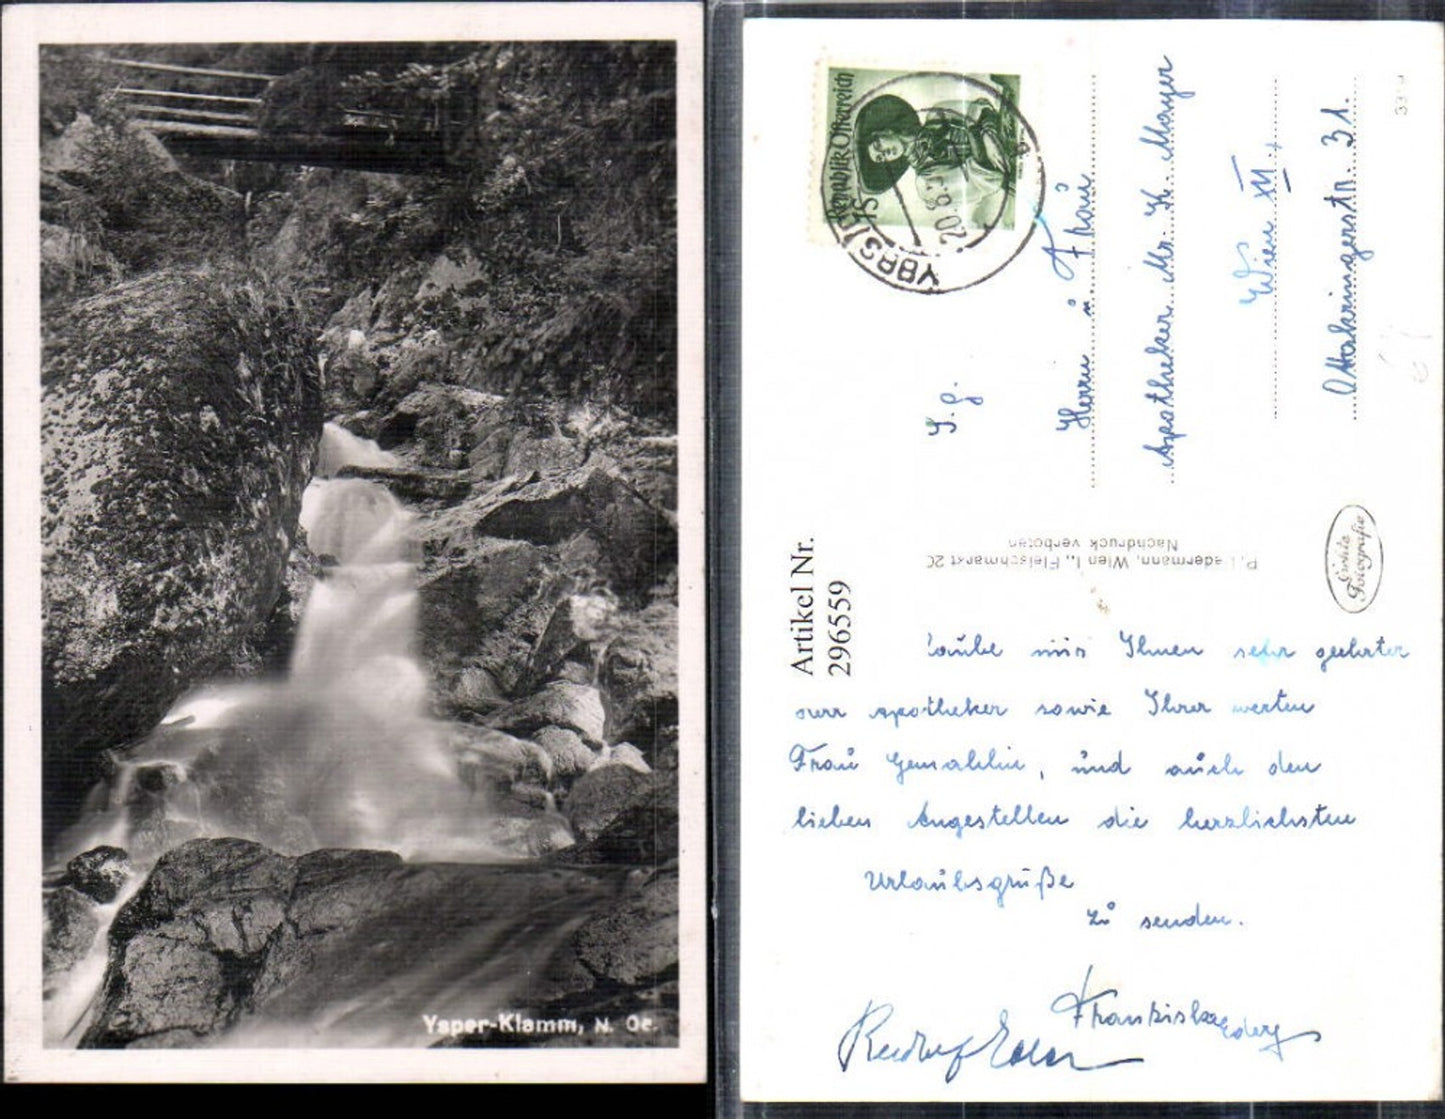 Ysper-Klamm, N. Oe.
Republik Österreich
YBBSITZ
20.8.
S. g.
Herrn u Frau
Apotheker Mr. K. Mayer
Wien XVI.
Ottakringerstr. 31.
P. Ledermann, Wien I., Fleischmarkt 20
Nachdruck verboten
Echte
Fotografie
Artikel Nr.
296559
Laube mir Ihnen sehr geehrter
Herr Apotheker sowie Ihrer werten
Frau Gemahlin, und auch den
lieben Angestellten die herzlichsten
Urlaubsgrüße
zu senden.
Franziska
Rudolf